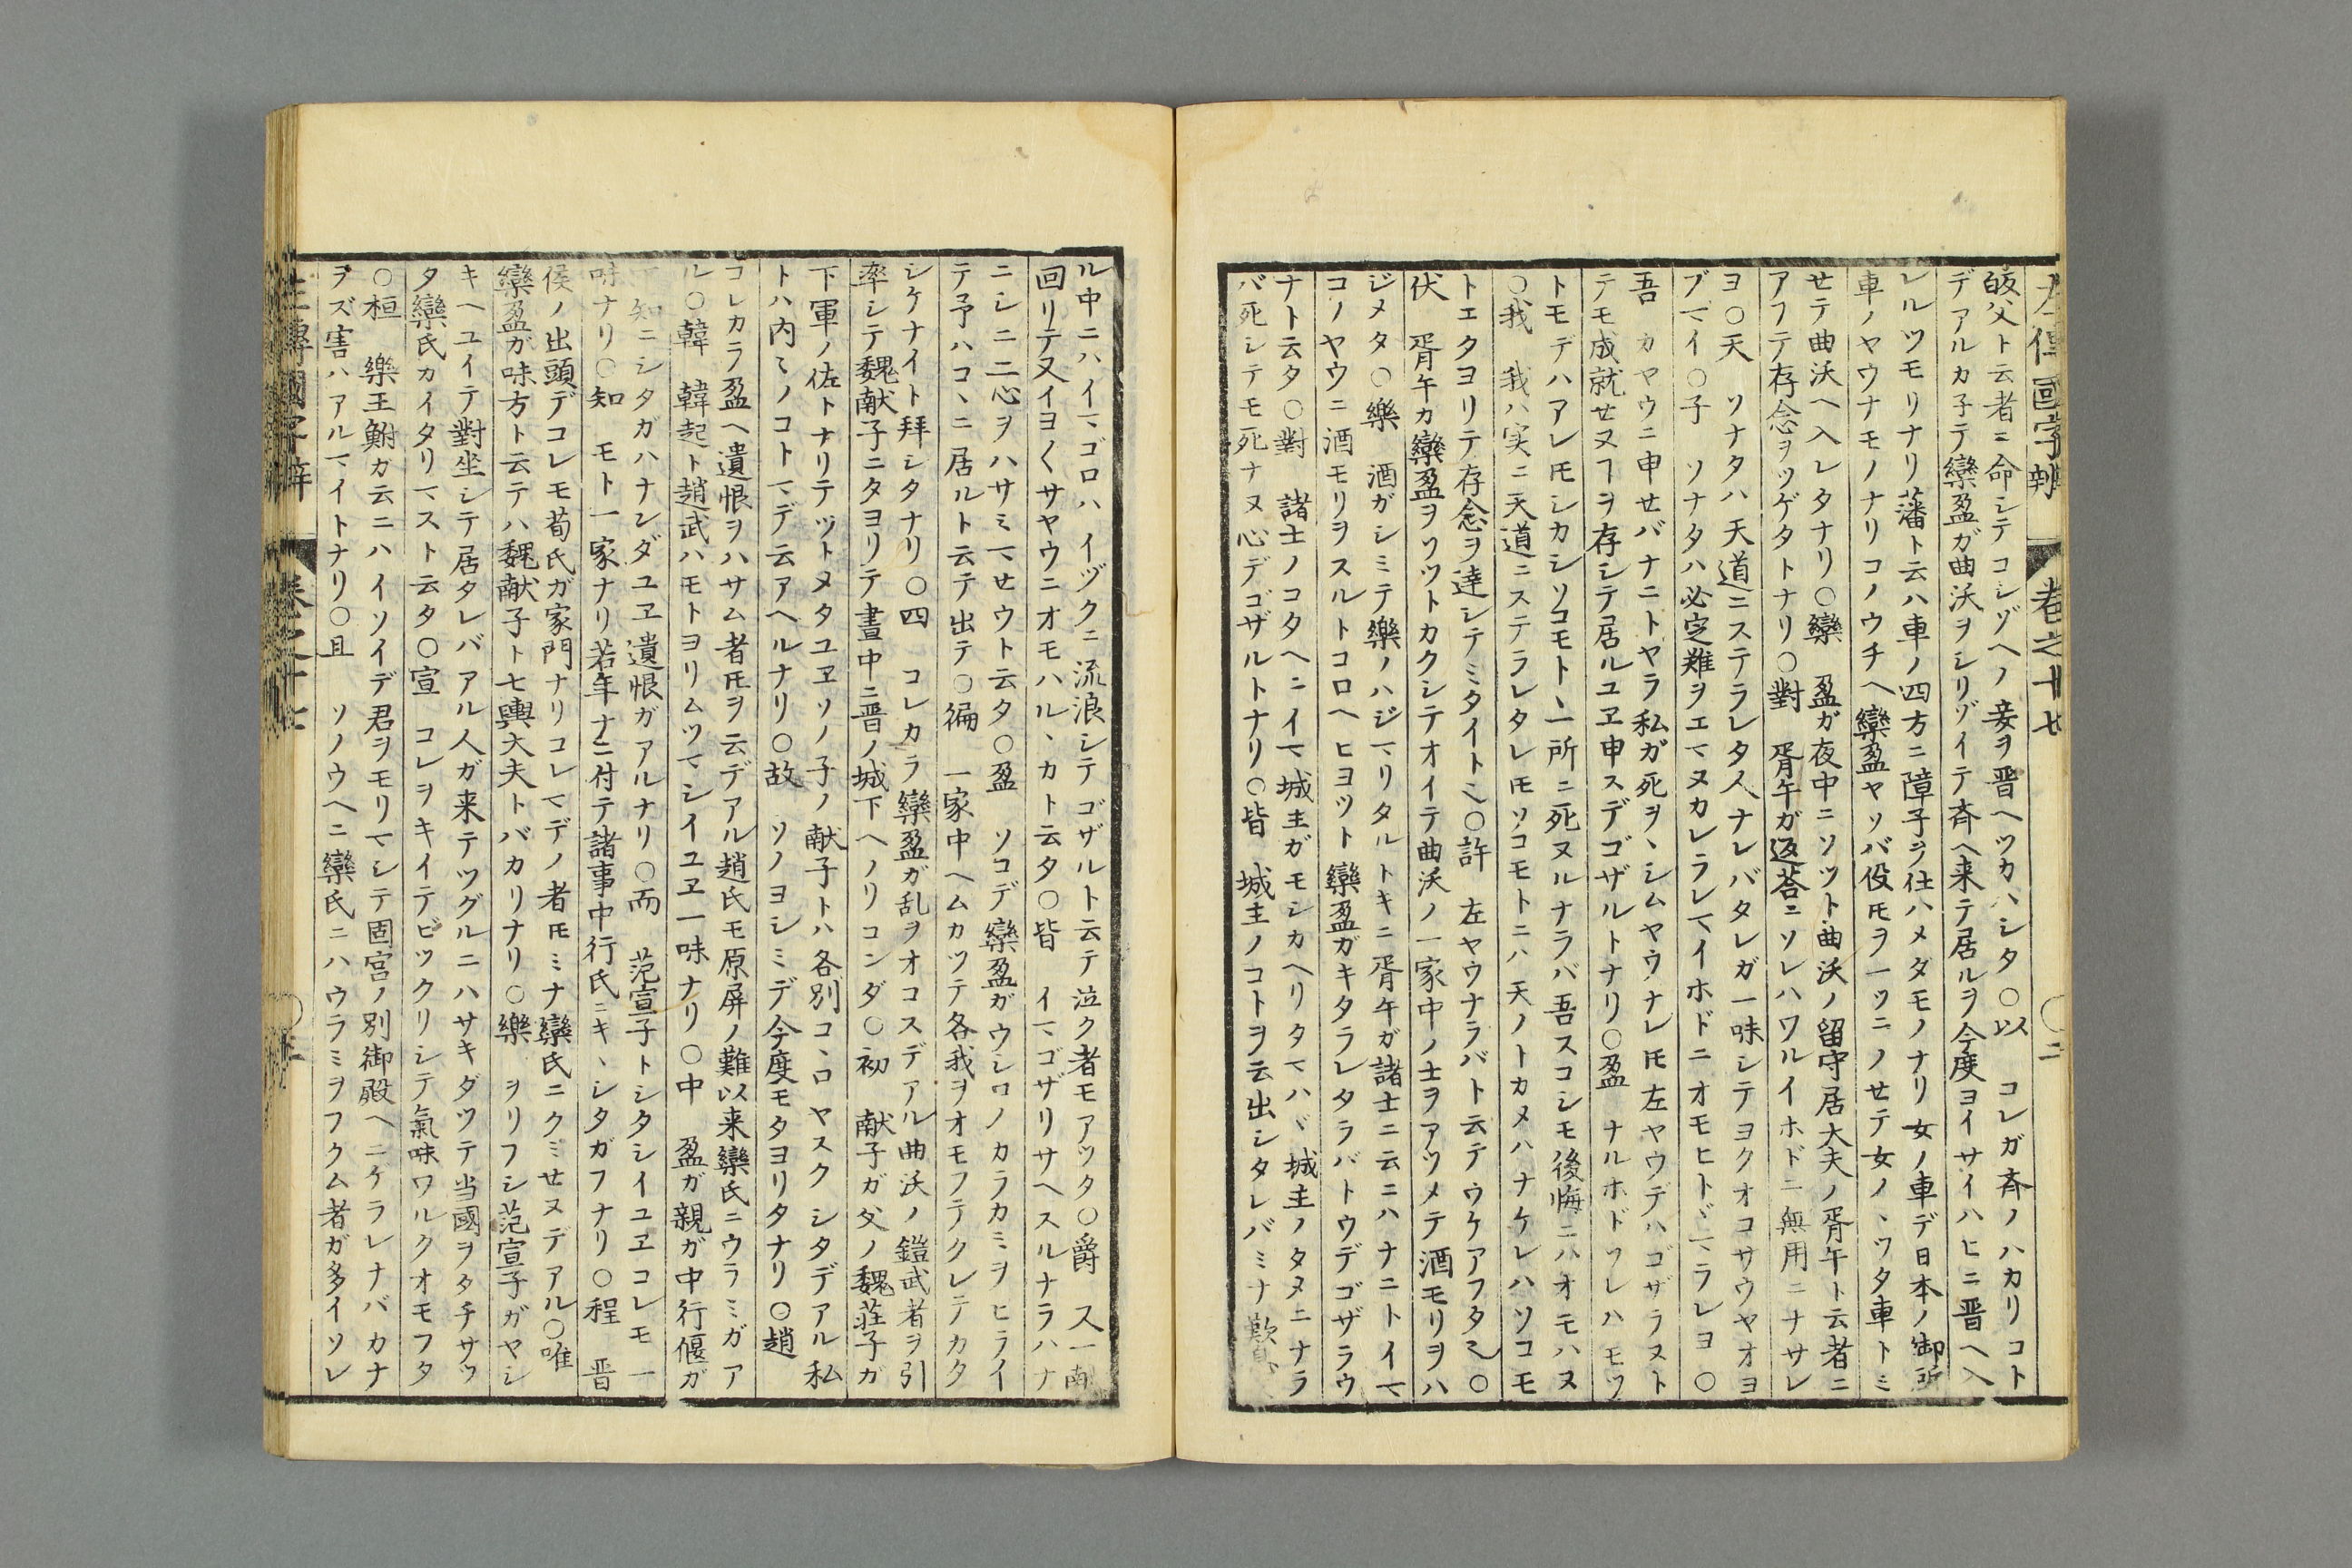 左傳國字辨 卷之十七 ○二
皈父ト云者ニ命シテコシヅヘノ妾ヲ晋ヘツカハシタ○以 コレガ斉ノハカリコト
デアルカ子テ欒盈ガ曲沃ヲシリゾイテ斉ヘ来テ居ルヲ今度ヨイサイハヒニ晋ヘ入
レルツモリナリ藩ト云ハ車ノ四方ニ障子ヲ仕ハメダモノナリ女ノ車デ日本ノ御所
車ノヤウナモノナリコノウチヘ欒盈ヤソバ役𪜈ヲ一ツニノせテ女ノヽツタ車トミ
せテ曲沃ヘ入レタナリ○欒 盈ガ夜中ニソツト曲沃ノ留守居大夫ノ胥午ト云者ニ
アフテ存念ヲツゲタトナリ○對 胥午ガ返荅ニソレハワルイホドニ無用ニナサレ
ヨ○天 ソナタハ天道ニステラレタ人ナレバタレガ一味シテヨクオコサウヤオヨ
ブマイ○子 ソナタハ必定難ヲエマヌカレラレマイホドニオモヒトヾマラレヨ○
吾 カヤウニ申せバナニトヤラ私ガ死ヲヽシムヤウナレ𪜈左ヤウデハゴザラヌト
テモ成就せヌヿヲ存シテ居ルユヱ申スデゴザルトナリ○盈 ナルホドワレハモツ
トモデハアレ𪜈シカシソコモトヽ一所ニ死ヌルナラバ吾スコシモ後悔ニハオモハヌ
○我 我ハ実ニ天道ニステラレタレ𪜈ソコモトニハ天ノトカメハナケレハソコモ
トエタヨリテ存念ヲ達シテミタイト也○許 左ヤウナラバト云テウケアフタ也○
伏 胥午カ欒盈ヲソツトカクシテオイテ曲沃ノ一家中ノ士ヲアツメテ酒モリヲハ
ジメタ○樂 酒ガシミテ樂ノハジマリタルトキニ胥午ガ諸士ニ云ニハナニトイマ
コノヤウニ酒モリヲスルトコロヘヒヨツト欒盈ガキタラレタラバトウデゴザラウ
ナト云タ○對 諸士ノコタヘニイマ城主ガモシカヘリタマハヾ城主ノタメニナラ
バ死シテモ死ナヌ心デゴザルトナリ○皆 城主ノコトヲ云出シタレバミナ歎
ル中ニハイマゴロハイヅクニ流浪シテゴザルト云テ泣ク者モアツタ○爵 又一
回リテ又イヨ〱サヤウニオモハルヽカト云タ○皆 イマゴザリサヘスルナラハナ
ニシニ二心ヲハサミマせウト云タ○盈 ソコデ欒盈ガウシロノカラカミヲヒライ
テ予ハコヽニ居ルト云テ出テ○徧 一家中ヘムカツテ各我ヲオモフテクレテカタ
シケナイト拜シタナリ○四 コレカラ欒盈ガ乱ヲオコスデアル曲沃ノ鎧武者ヲ引
率シテ魏献子ニタヨリテ晝中ニ晋ノ城下ヘノリコンダ○初 献子ガ父ノ魏莊子ガ
下軍ノ佐トナリテツトメタユヱソノ子ノ献子トハ各別コヽロヤスクシタデアル私
トハ内〻ノコトマデ云アヘルナリ○故 ソノヨシミデ今度モタヨリタナリ○趙
コレカラ盈ヘ遺恨ヲハサム者𪜈ヲ云デアル趙氏モ原屏ノ難以来欒氏ニウラミガア
ル○韓 韓起ト趙武ハモトヨリムツマシイユヱ一味ナリ○中 盈ガ親ガ中行偃ガ
下知ニシタガハナンダユヱ遺恨ガアルナリ○而 范宣子トシタシイユヱコレモ一
味ナリ○知 モト一家ナリ若年ナニ付テ諸事中行氏ニキヽシタガフナリ○程 晋
侯ノ出頭デコレモ荀氏ガ家門ナリコレマデノ者𪜈ミナ欒氏ニクミせヌデアル○唯
欒盈ガ味方ト云テハ魏献子ト七輿大夫トバカリナリ○樂 ヲリフシ范宣子ガヤシ
キヘユイテ對坐シテ居タレバアル人ガ来テツグルニハサキダツテ当國ヲタチサツ
タ欒氏カイタリマスト云タ○宣 コレヲキイテビツクリシテ氣味ワルクオモフタ
○桓 樂王鮒ガ云ニハイソイデ君ヲモリマシテ固宮ノ別御殿ヘニケラレナバカナ
ヲズ害ハアルマイトナリ○且 ソノウヘニ欒氏ニハウラミヲフクム者ガ多イソレ
左傳國字辨 卷之十七